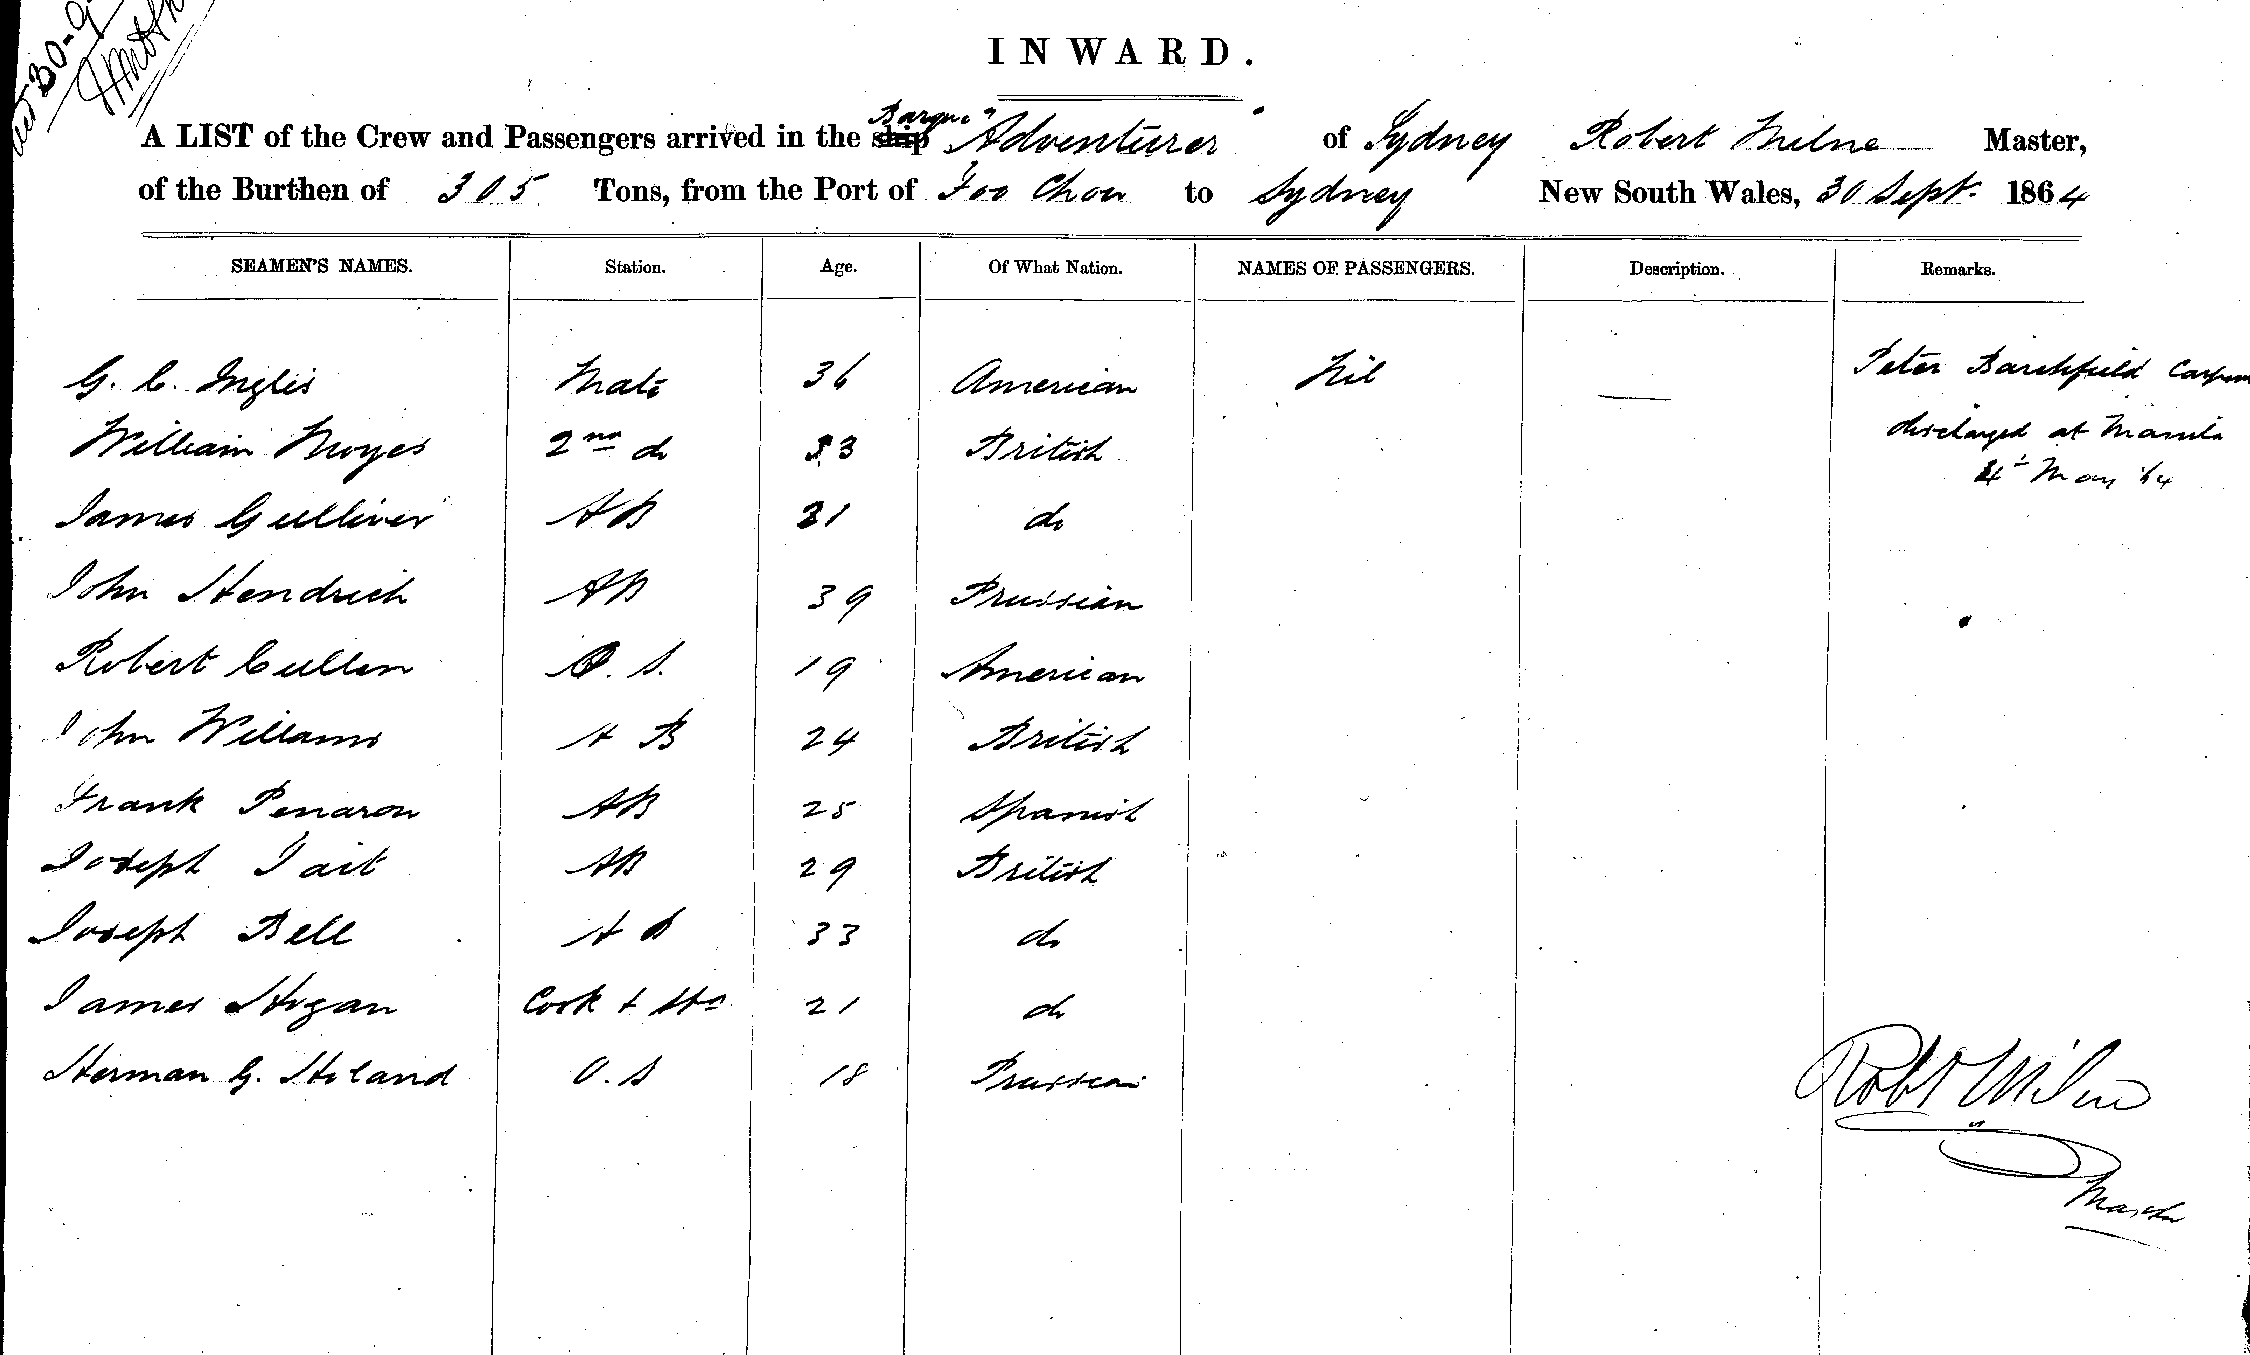 INWARD.
A LIST of the Crew and Passengers arrived in the ship Barque "Adventurer" of Sydney Robert Milne Master,
of the Burthen of 305 Tons, from the Port of Foo Chou to Sydney New South Wales, 30 Sept. 1864
SEAMEN'S NAMES. Station. Age. Of What Nation. NAMES OF PASSENGERS. Description. Remarks.
G. C. Inglis Mate 36 American Nil — Peter Barchfield
William Moyes 2nd do 33 British discharged at Manila
4th May 64
James Gulliver AB 21 do
John Hendrich AB 39 Prussian
Robert Cullen O.S. 19 American
John Willams AB 24 British
Frank Penaron AB 25 Spanish
Joseph Tait AB 29 British
Joseph Bell AB 33 do
James Hogan Cook + Std 21 do
Herman G. Holand O.S 18 Prussian
Robt Milne
Master